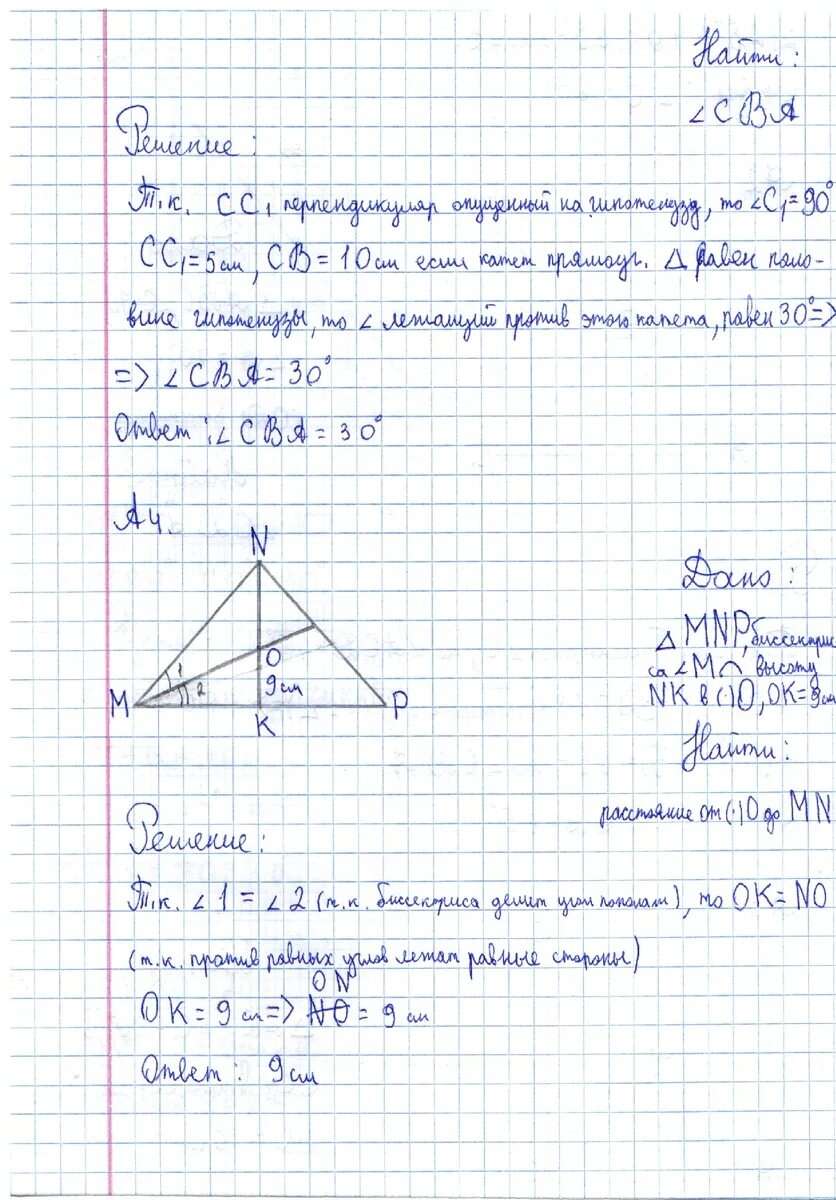 Найти:
∠CBA
Решение:
Т.к. CC₁ перпендикуляр опущенный на гипотенузу, то ∠C₁=90°
CC₁=5см, CB=10см если катет прямоуг. △ равен поло-
вине гипотенузы, то ∠ лежащий против этого катета, равен 30° =>
=> ∠CBA=30°
Ответ: ∠CBA=30°
А4.
N
1
O
2
9см
M
K
P
Дано:
△MNP, биссектри
са ∠M ∩ высоту
NK в (·)O, OK=9см
Найти:
расстояние от (·)O до MN
Решение:
Т.к. ∠1=∠2 (т.к. биссектриса делит угол пополам), то OK=NO
(т.к. против равных углов лежат равные стороны)
ON
OK=9см=> NO=9см
Ответ: 9см